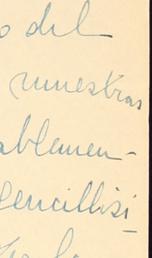 o del
muestras
ablemen-
lencillisi-